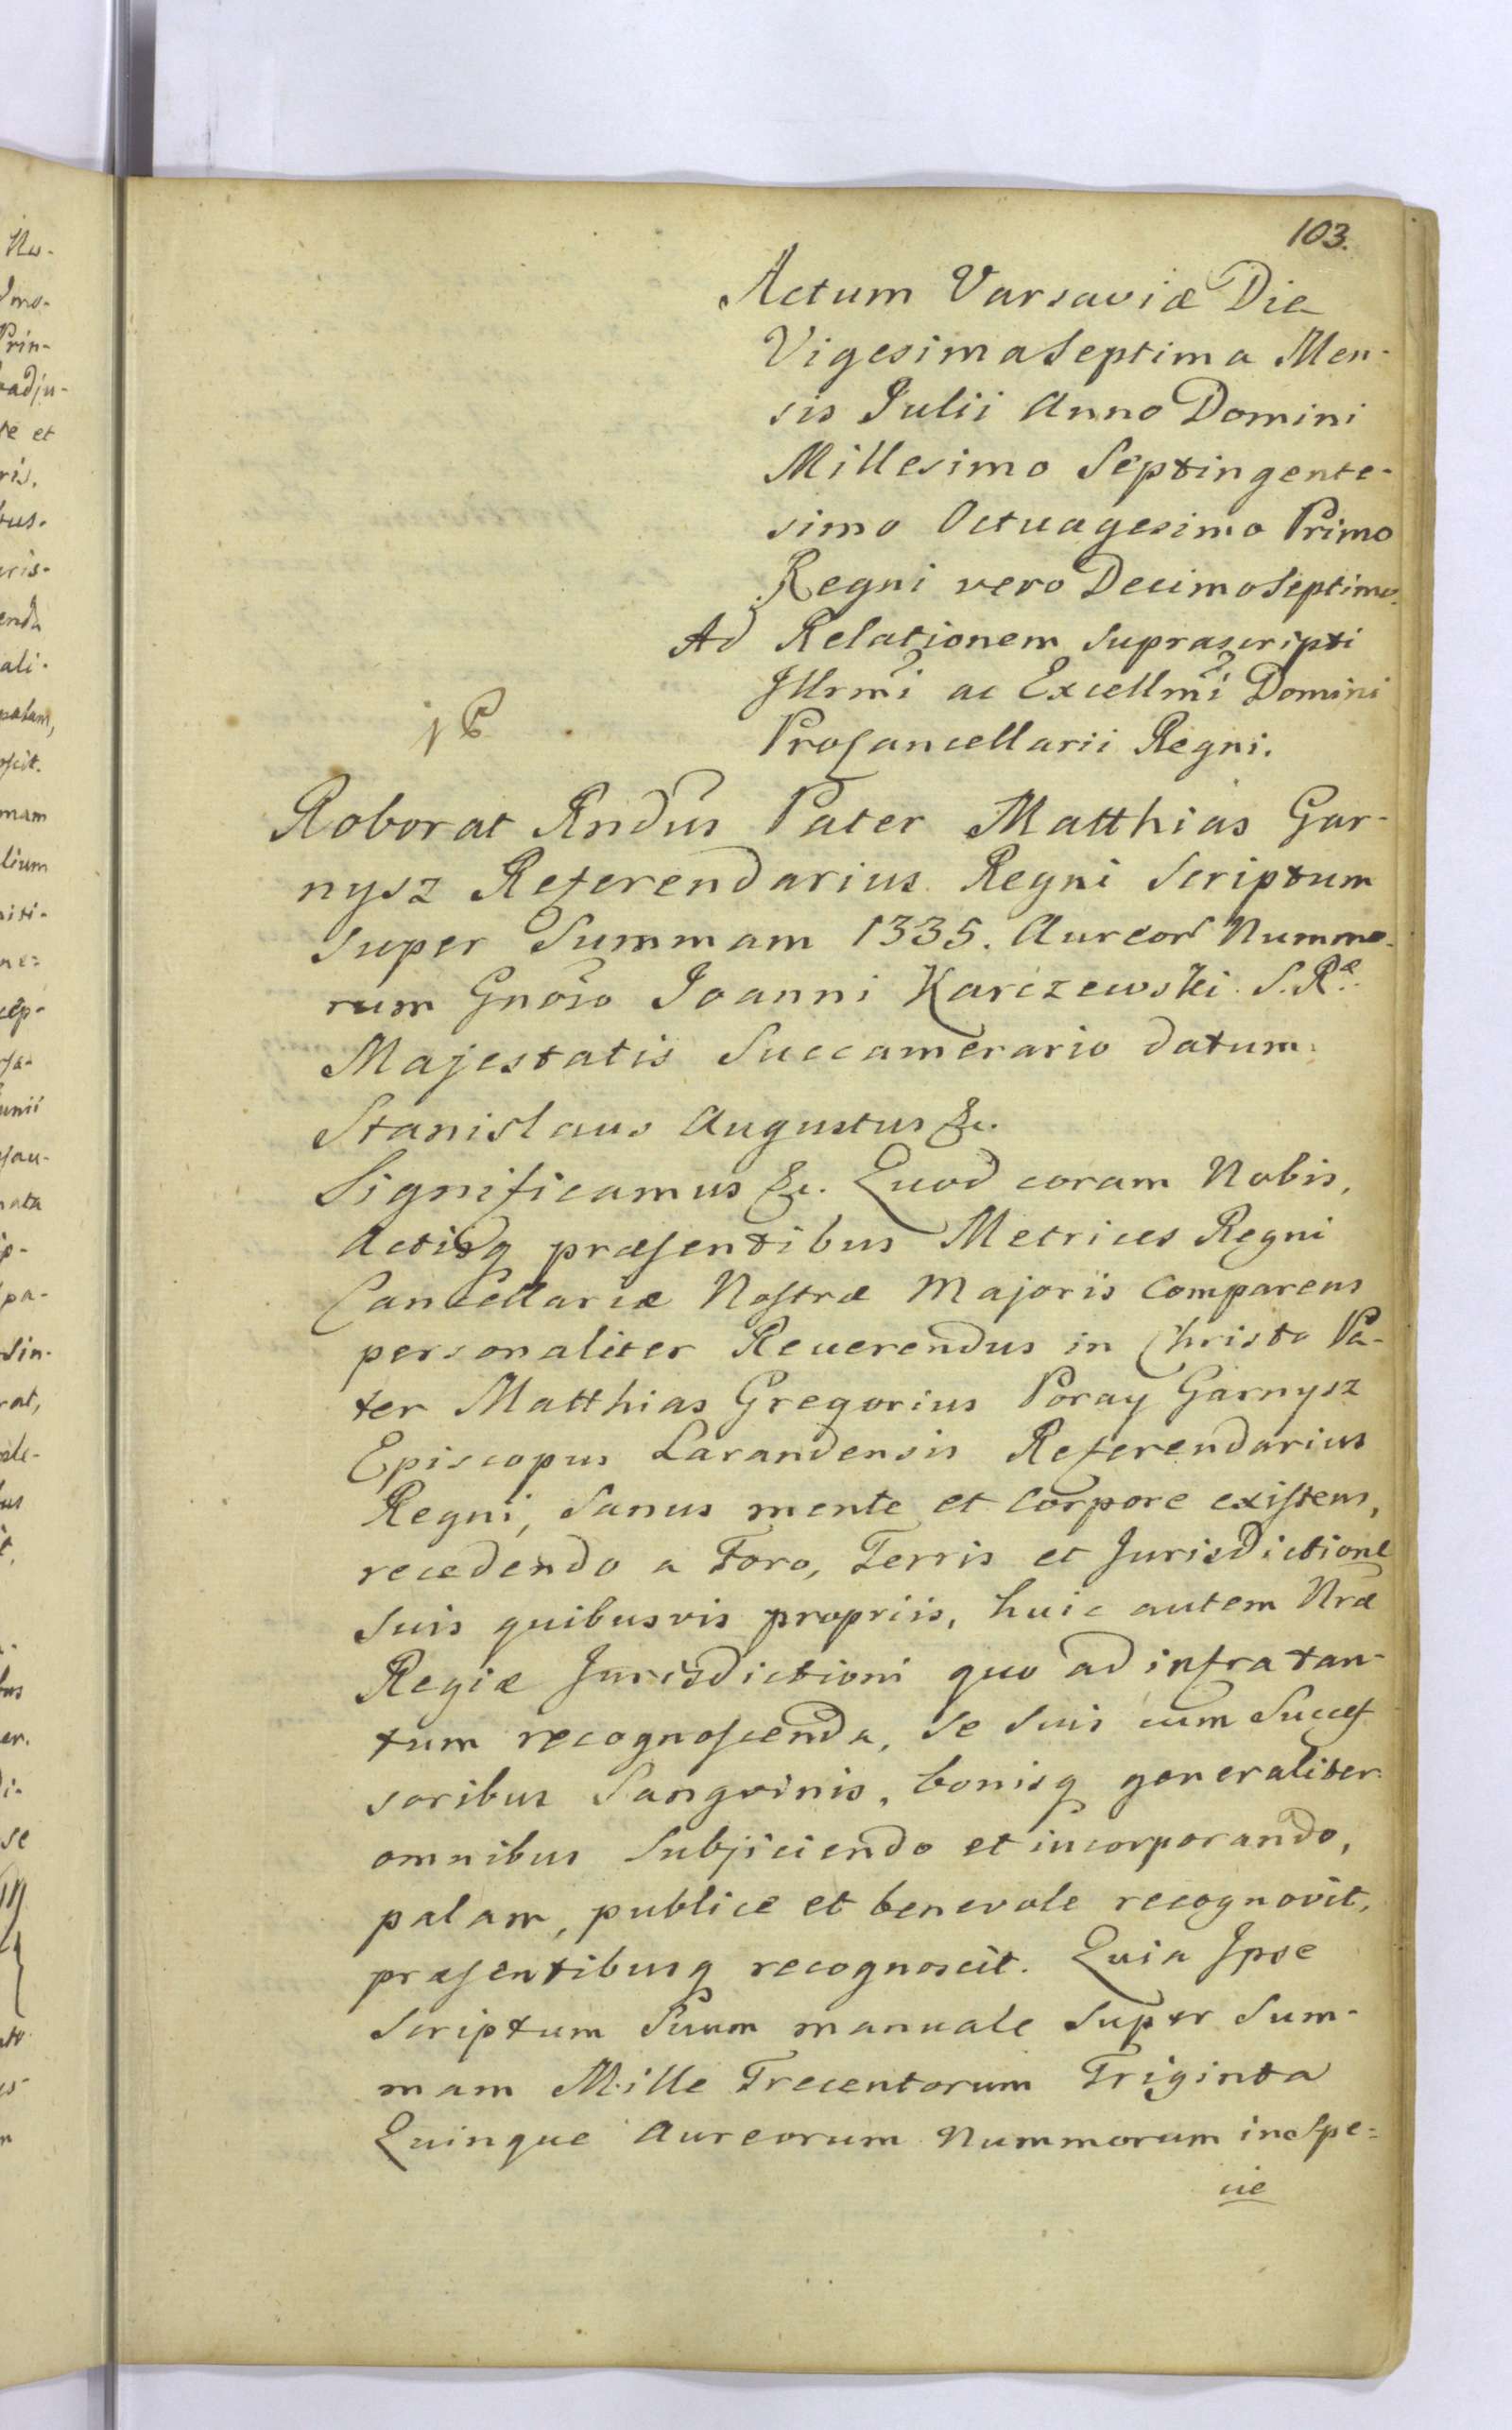 103.
Actum Varsaviæ Die
Vigesima Septima Men-
sis Julii Anno Domini
Millesimo Septingente-
simo Octuagesimo Primo
Regni vero Decimo Septimo.
Ad Relationem suprascripti
Illrmi ac Excellmi Domini
ProCancellarii Regni.
Roborat Rndus Pater Matthias Gar-
nysz Referendarius Regni Scriptum
super Summam 1335. Aureor Nummo-
rum Gnoso Joanni Karczewski S. Ræ.
Majestatis Succamerario datum.
Stanislaus Augustus &c.
Significamus &c. Quod coram Nobis,
Actisq præsentibus Metrices Regni
Cancellariæ Nostræ Majoris Comparens
personaliter Reuerendus in Christo Pa-
ter Matthias Gregorius Poray Garnysz
Episcopus Larandensis Referendarius
Regni, Sanus mente et Corpore existens,
recedendo a Foro, Terris et Jurisdictione
suis quibusvis propriis, huic autem Nræ
Regiæ Jurisdictioni quo ad infra tan-
tum recognoscenda, se suis cum Succes
soribus Sangvinis, bonisq generaliter
omnibus Subjiciendo et incorporando,
palam, publice et benevole recognovit,
præsentibusq recognoscit. Quia Ipse
Scriptum Suum manuale super Sum-
mam Mille Trecentorum Triginta
Quinque Aureorum Nummorum in Spe=
cie